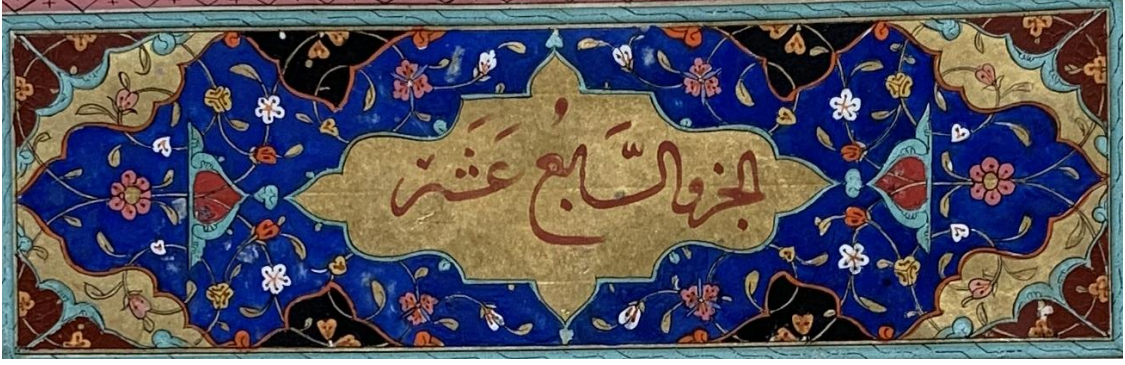 الجزو السَّابعُ عَشَر